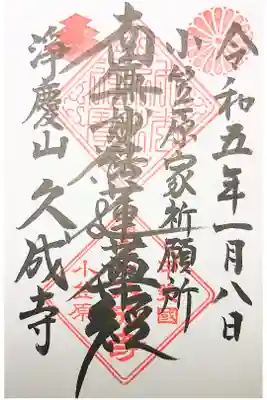 令和五年一月八日
小笠原家祈願所
南無妙法蓮華経
浄慶山 久成寺
小笠原